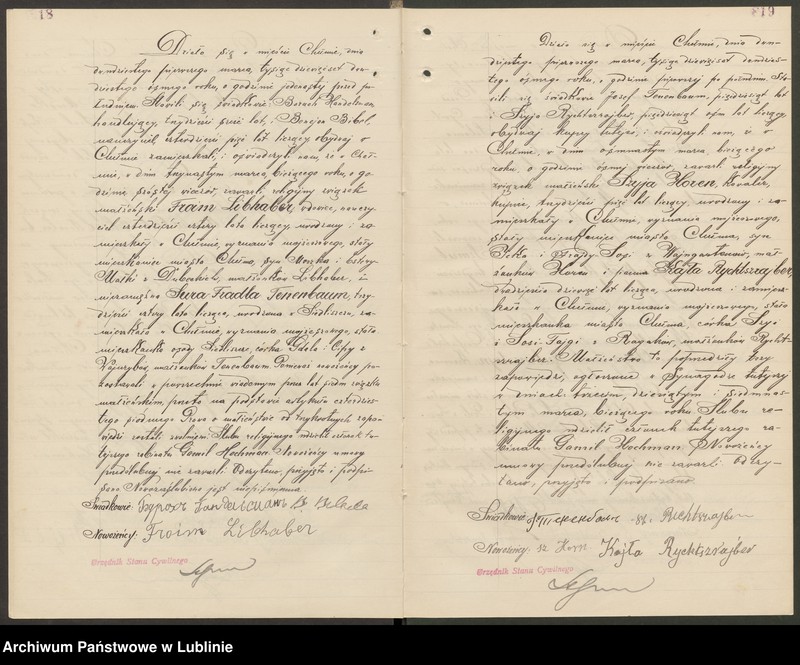 81
Działo się w mieście Chełmie, dnia
dwudziestego pierwszego marca, tysiąc dziewięćset dwu-
dziestego ósmego roku, o godzinie jedenastej przed po-
łudniem. Stawili się świadkowie: Boruch Handelsman
handlujący, trzydzieści sześć lat, i Boruch
nauczyciel czterdzieści pięć lat liczący obydwaj w
Chełmie zamieszkali; i oświadczyli nam, że w Cheł-
mie, w dniu trzynastym marca, bieżącego roku, o go-
dzinie szóstej wieczór, zawarli religijny związek
małżeński Froim Libhaber, wdowiec,
czterdzieści cztery lata liczący, urodzony i za-
mieszkały w Chełmie, wyznania mojżeszowego, stały
mieszkaniec miasta Chełma, syn Moszka i Estery
Małki z małżonków Libhaber, i
Sura Fradla Tenenbaum, trzy-
dzieści cztery lata licząca, urodzona w Siedliszczu, za-
mieszkała w Chełmie, wyznania mojżeszowego, stała
mieszkanka osady Siedliszcze, córka i Cypy z
małżonków Tenenbaum. Ponieważ nowożeńcy po-
zostawali w powszechnie wiadomym przez lat siedem związku
małżeńskim, przeto na podstawie artykułu czterdzies-
tego siódmego Prawa o małżeństwie od trzykrotnych zapo-
wiedzi zostali zwolnieni. Ślubu religijnego udzielił członek tu-
tejszego rabinatu Gamel Hochman. Nowożeńcy umowy
przedślubnej nie zawarli. Odczytano, przyjęto i podpi-
sano. Nowozaślubiona jest niepiśmienna.
Świadkowie:
Nowożeńcy: Froim Libhaber
Urzędnik Stanu Cywilnego
Działo się w mieście Chełmie, dnia dwu-
dziestego pierwszego marca, tysiąc dziewięćset dwudzies-
tego ósmego roku, o godzinie pierwszej po południu. Sta-
wili się świadkowie Josef Tenenbaum, pięćdziesiąt lat
i Szyja Rychtszrajber, pięćdziesiąt ośm lat liczący
obydwaj kupcy tutejsi, i oświadczyli nam, że w
Chełmie, w dniu ósmnastym marca, bieżącego
roku, o godzinie ósmej wieczór, zawarli religijny
związek małżeński Szyja Horen, kawaler,
kupiec, trzydzieści pięć lat liczący, urodzony i za-
mieszkały w Chełmie, wyznania mojżeszowego,
stały mieszkaniec miasta Chełma, syn
Icka i Frajdy z Wajngartenów, mał-
żonków Horen i panna Kajla Rychtszrajber,
dwadzieścia dziewięć lat licząca, urodzona i zamiesz-
kała w Chełmie, wyznania mojżeszowego, stała
mieszkanka miasta Chełma, córka Szyi
i Sosi-Fajgi z małżonków Rycht-
szrajber. Małżeństwo to poprzedziły trzy
zapowiedzi, ogłoszone w Synagodze tutejszej
w dniach trzecim, dziesiątym i siedemnas-
tym marca, bieżącego roku. Ślubu re-
ligijnego udzielił członek tutejszego ra-
binatu Gamel Hochman. Nowożeńcy
umowy przedślubnej nie zawarli. Odczy-
tano, przyjęto i podpisano.
Świadkowie: Rychtszrajber
Nowożeńcy: Sz Horn Kajla Rychtszrajber
Urzędnik Stanu Cywilnego
Archiwum Państwowe w Lublinie